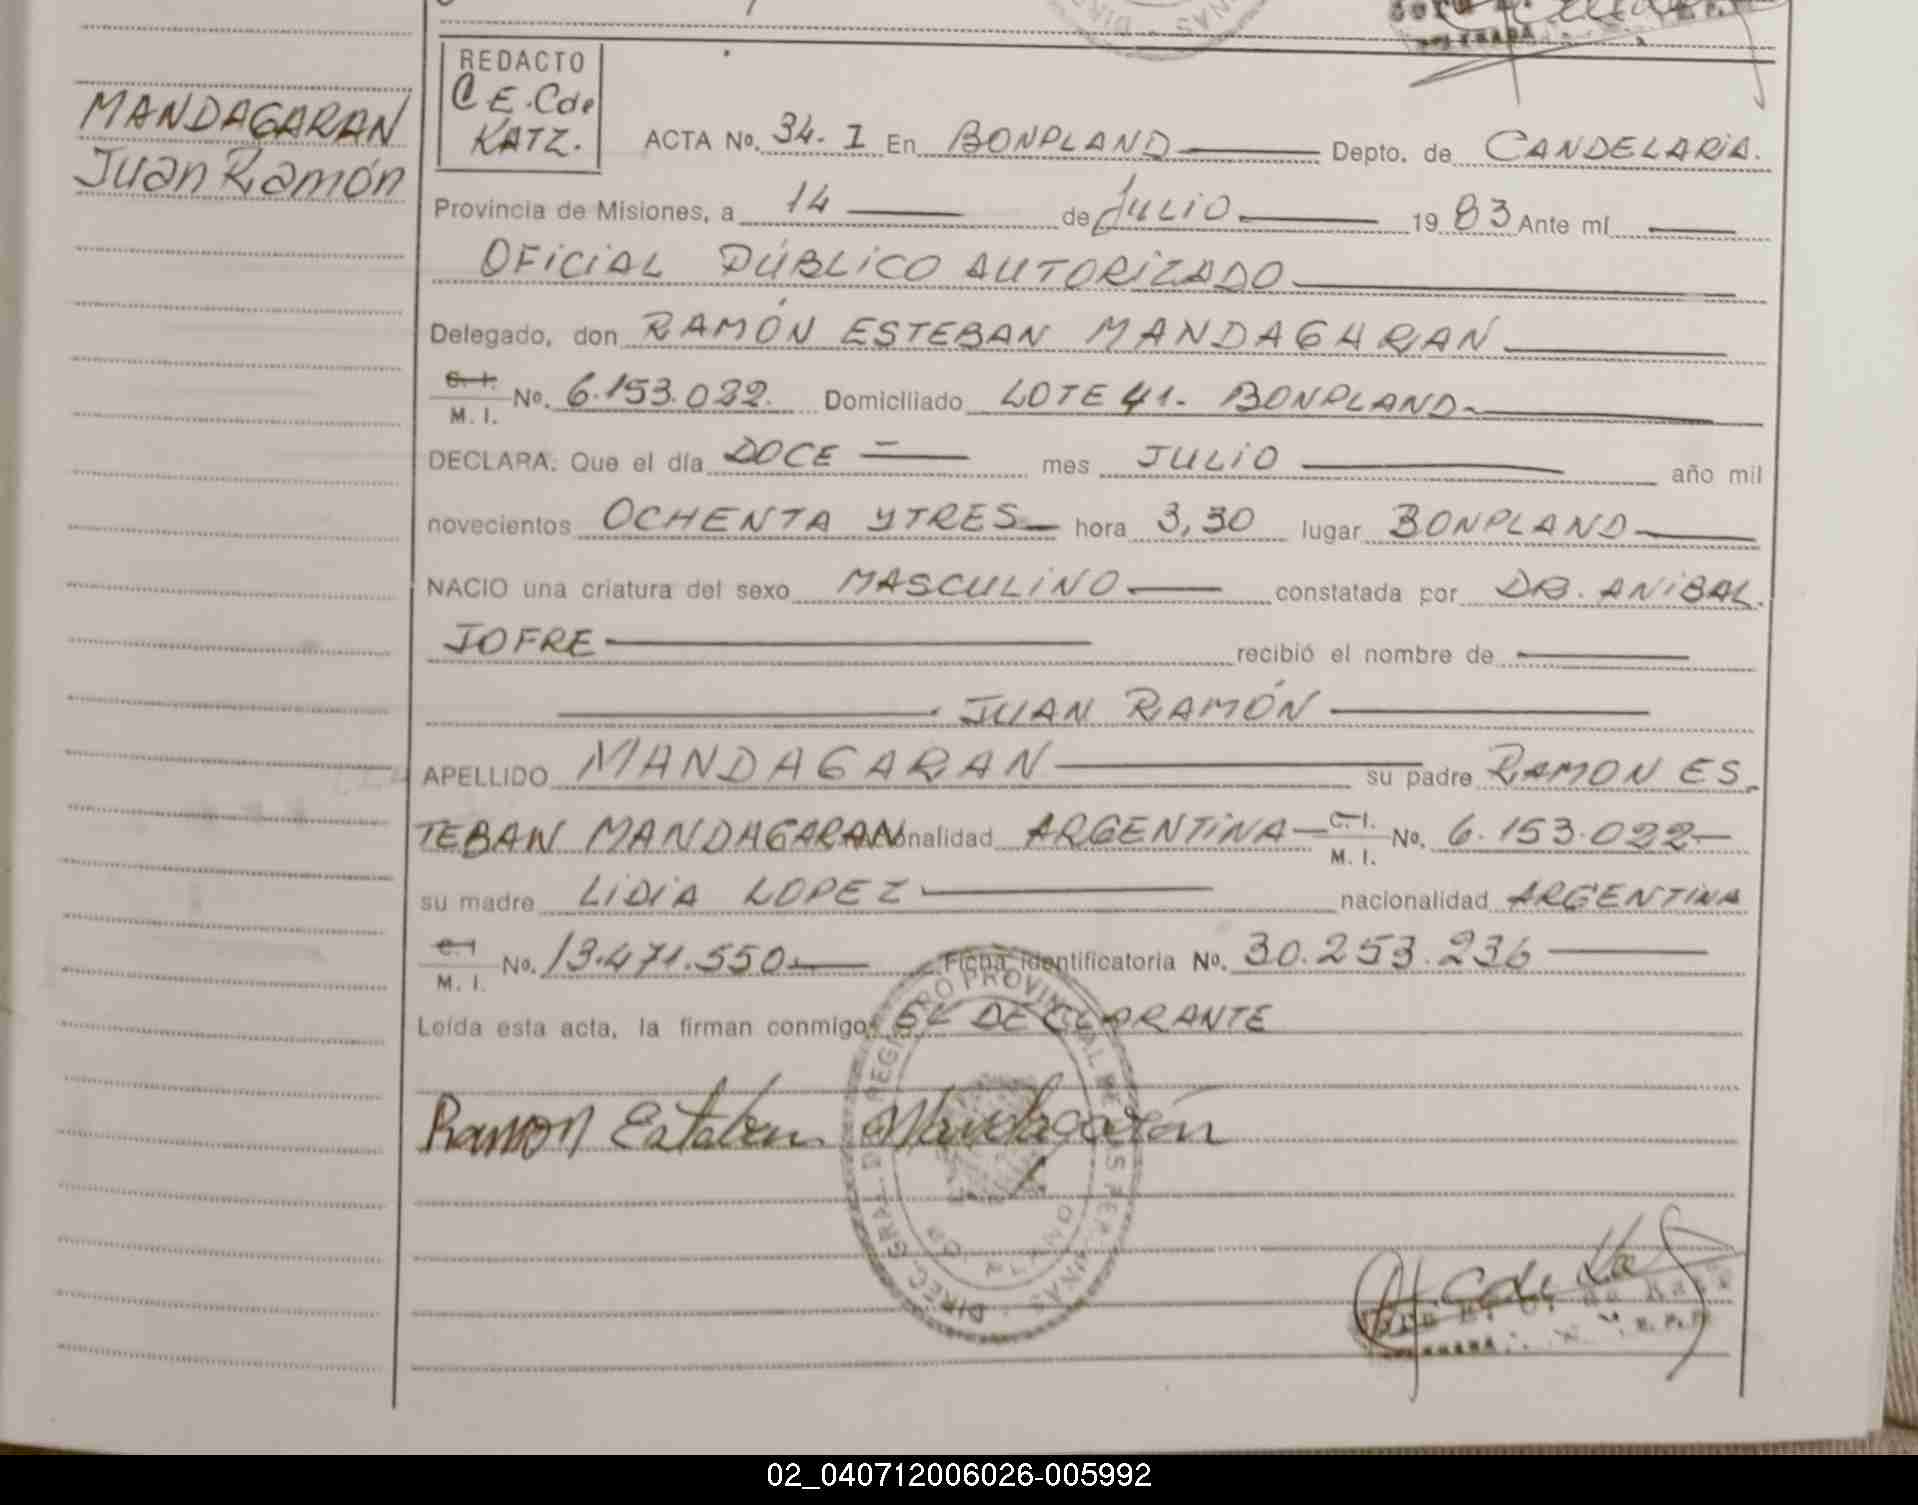 MANDAGARAN
Juan Ramón
REDACTO
C E. C de
KATZ.
ACTA No. 34. I En BONPLAND Depto. de CANDELARIA.
Provincia de Misiones, a 14 de JULIO 1983 Ante mí
OFICIAL PÚBLICO AUTORIZADO
Delegado, don RAMÓN ESTEBAN MANDAGARAN
C. I. M. I. No. 6.153.022. Domiciliado LOTE 41. BONPLAND
DECLARA: Que el día DOCE mes JULIO año mil
novecientos OCHENTA Y TRES hora 3,30 lugar BONPLAND
NACIO una criatura del sexo MASCULINO constatada por DR. ANIBAL
JOFRE recibió el nombre de
JUAN RAMÓN
APELLIDO MANDAGARAN su padre RAMON ES-
TEBAN MANDAGARAN nacionalidad ARGENTINA C. I. M. I. No. 6.153.022
su madre LIDIA LOPEZ nacionalidad ARGENTINA
C. I M. I. No. 13.471.550 Ficha identificatoria No. 30.253.236
Leída esta acta, la firman conmigo: EL DECLARANTE
Ramon Esteban Mandagarán
DIREC. GRAL. DE REGISTRO PROVINCIAL DE LAS PERSONAS
02_040712006026-005992